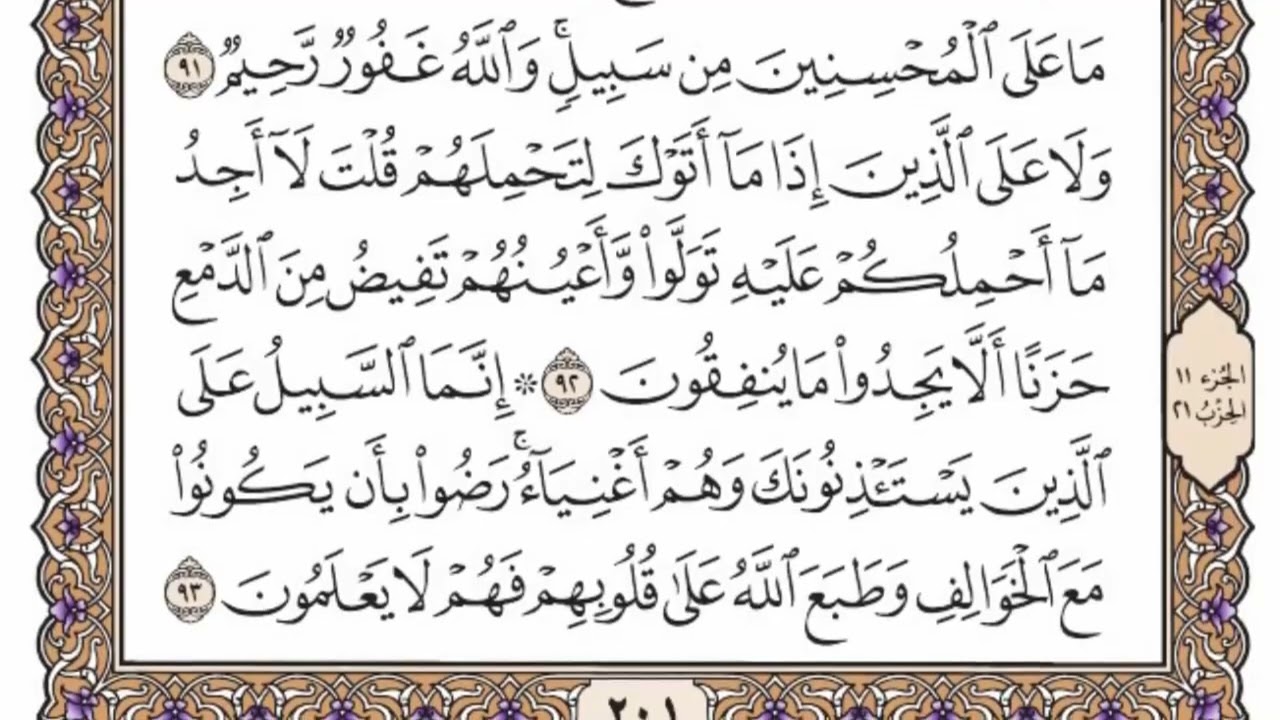 مَا عَلَى ٱلْمُحْسِنِينَ مِن سَبِيلٍۚ وَٱللَّهُ غَفُورٌ رَّحِيمٌ ٩١
وَلَا عَلَى ٱلَّذِينَ إِذَا مَآ أَتَوْكَ لِتَحْمِلَهُمْ قُلْتَ لَآ أَجِدُ
مَآ أَحْمِلُكُمْ عَلَيْهِ تَوَلَّوا۟ وَّأَعْيُنُهُمْ تَفِيضُ مِنَ ٱلدَّمْعِ
حَزَنًا أَلَّا يَجِدُوا۟ مَا يُنفِقُونَ ٩٢ ۞ إِنَّمَا ٱلسَّبِيلُ عَلَى
ٱلَّذِينَ يَسْتَـْٔذِنُونَكَ وَهُمْ أَغْنِيَآءُۚ رَضُوا۟ بِأَن يَكُونُوا۟
مَعَ ٱلْخَوَالِفِ وَطَبَعَ ٱللَّهُ عَلَىٰ قُلُوبِهِمْ فَهُمْ لَا يَعْلَمُونَ ٩٣
الجُزْء ١١
الحِزْبُ ٢١
٢٠١